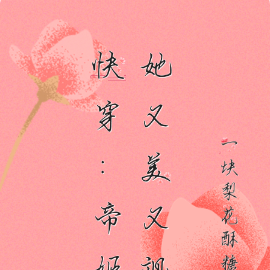 快穿：帝姬
她又美又
一块梨花酥糖